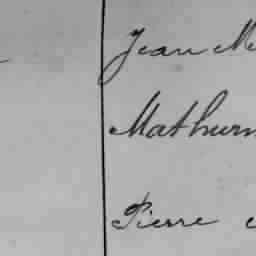 Jean M
Mathurn
Pierre